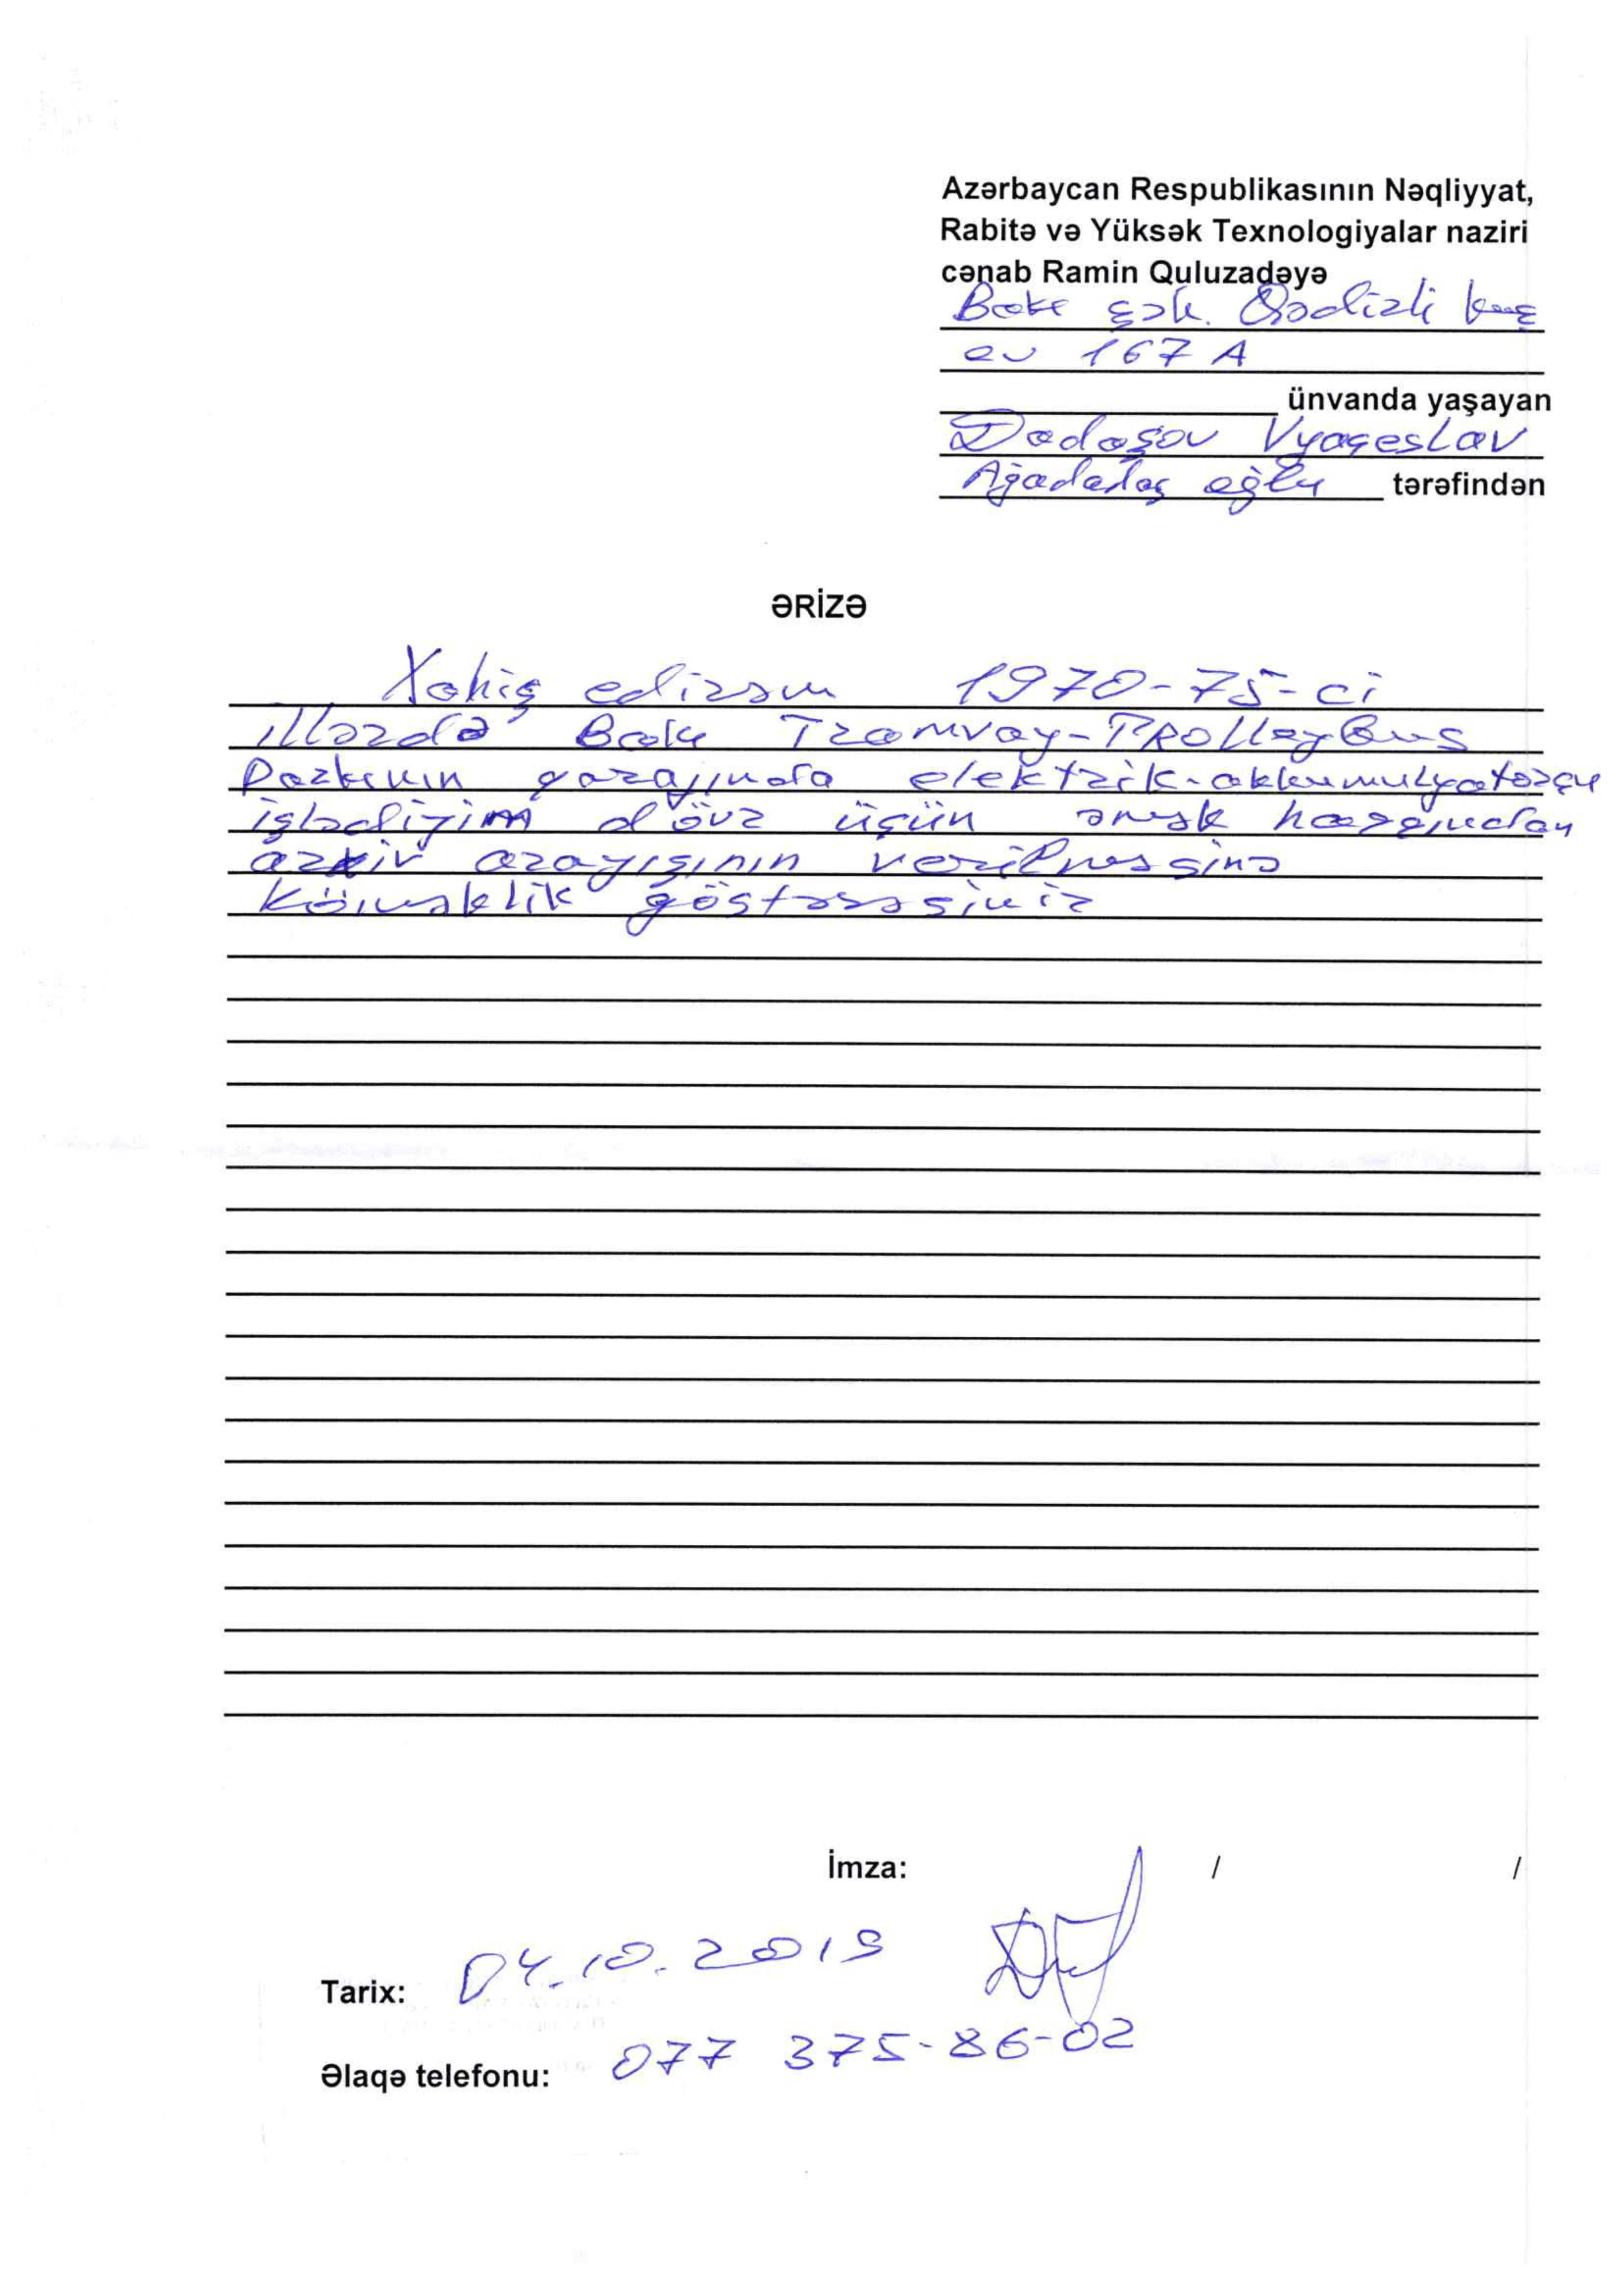 Azərbaycan Respublikasının Nəqliyyat,
Rabitə və Yüksək Texnologiyalar naziri
cənab Ramin Quluzadəyə
Bakı şəh. Qədirli küç
ev 167 A
ünvanda yaşayan
Dadaşov Vyaçeslav
Ağadadaş oğlu tərəfindən
ƏRİZƏ
Xahiş edirəm 1970-75-ci
illərdə Bakı Tramvay-Trolleybus
Parkının qarajında elektrik-akkumulyatorçu
işlədiyim dövr üçün əmək haqqından
arxiv arayışının verilməsinə
köməklik göstərəsiniz
İmza: / /
Tarix: 04.10.2019
Əlaqə telefonu: 077 375-86-02